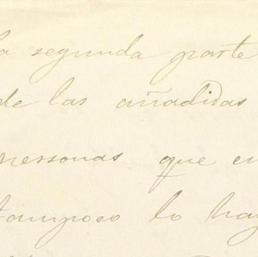 la segunda parte
de las añadidas
personas que en
tampoco lo hay